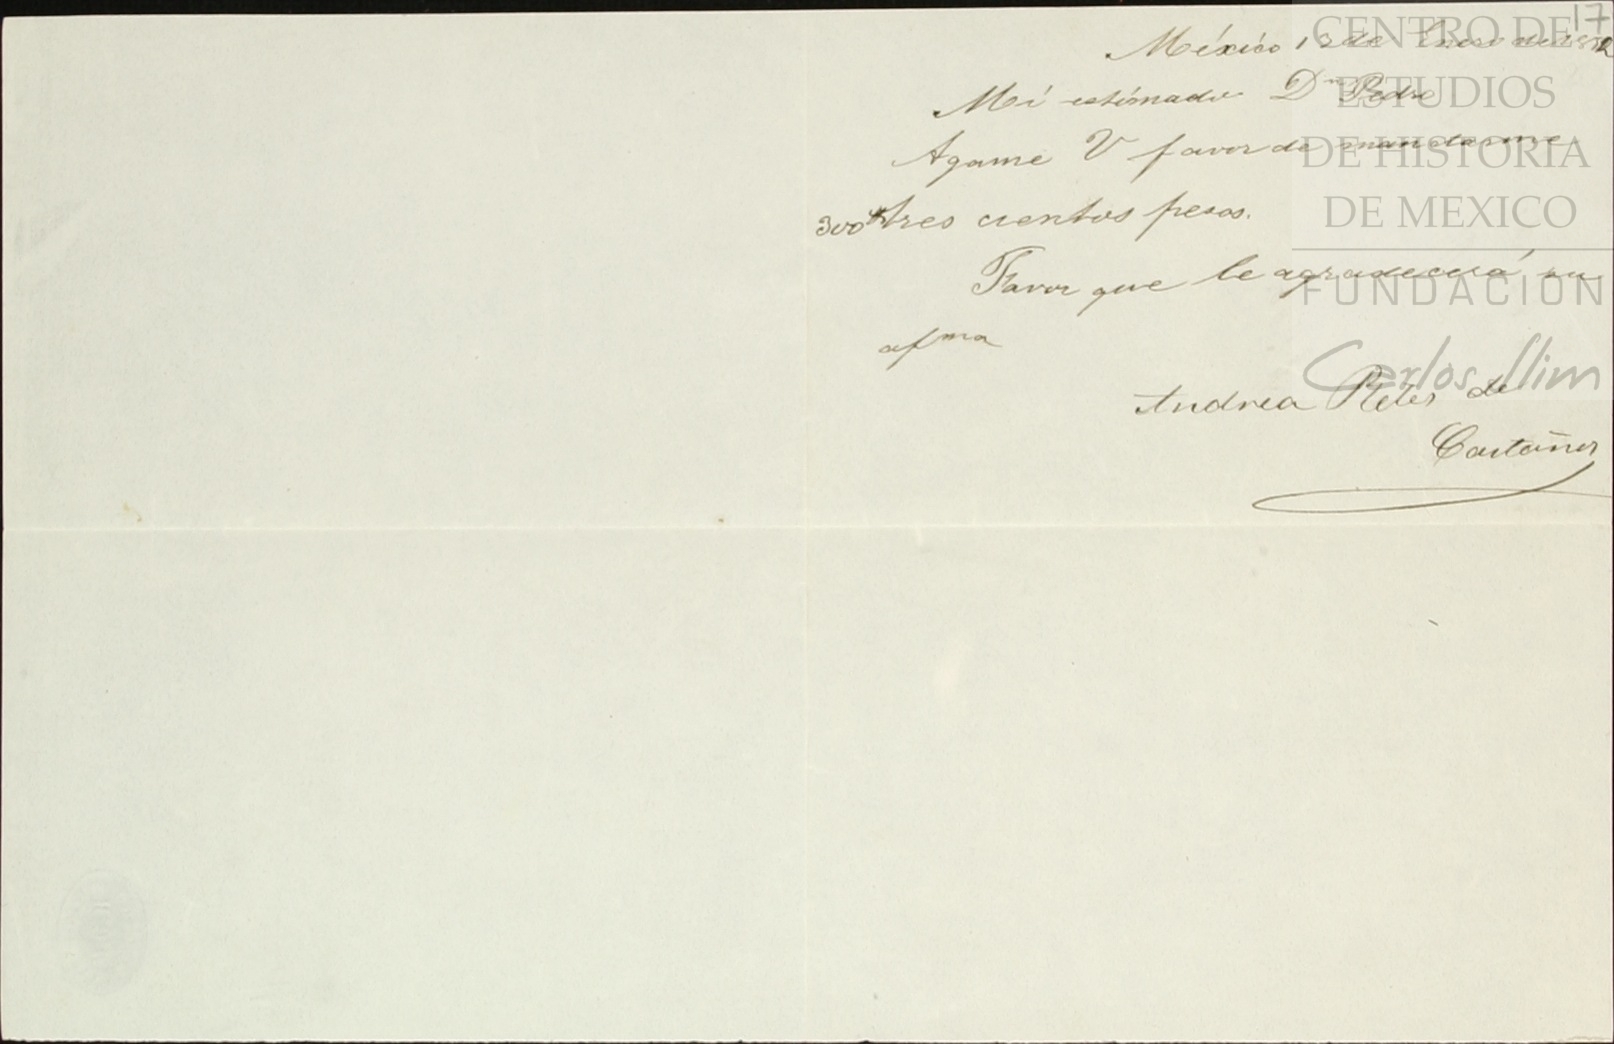 17
México 12 de Enero de
Mi estimado Dn Pedro
Agame V favor de mandarme
300 tres cientos pesos.
Favor que le agradecerá su
afma
Andrea Retes de
Castañer
CENTRO DE
ESTUDIOS
DE HISTORIA
DE MEXICO
FUNDACION
Carlos Slim